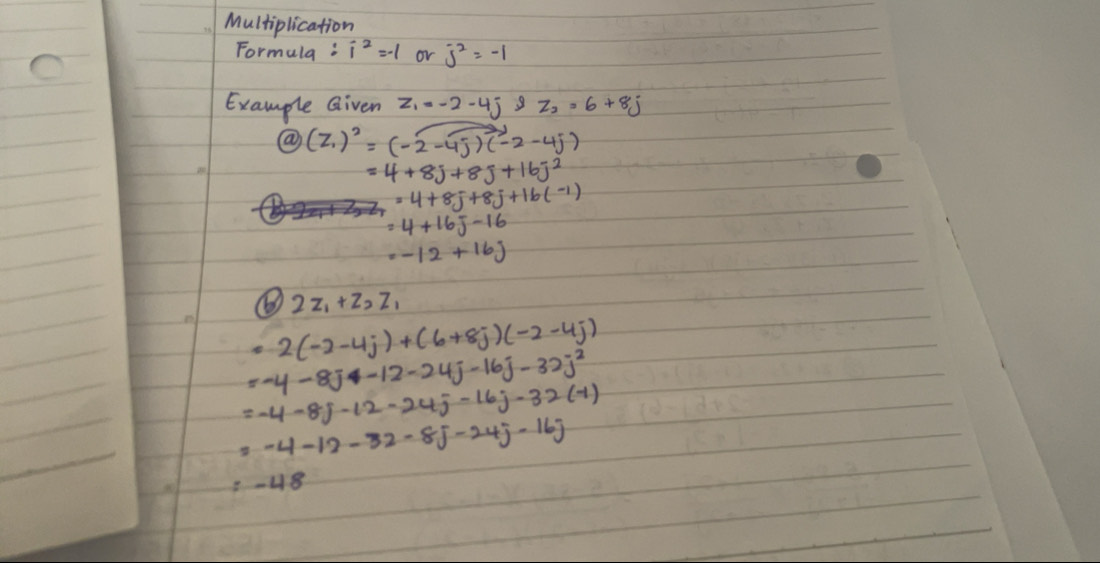 Multiplication
Formula : i² = -1 or j² = -1
Example Given Z₁ = -2 - 4j & Z₂ = 6 + 8j
ⓐ (Z₁)² = (-2 - 4j)(-2 - 4j)
= 4 + 8j + 8j + 16j²
= 4 + 8j + 8j + 16(-1)
= 4 + 16j - 16
= -12 + 16j
ⓑ 2Z₁ + Z₂Z₁
= 2(-2 - 4j) + (6 + 8j)(-2 - 4j)
= -4 - 8j + -12 - 24j - 16j - 32j²
= -4 - 8j - 12 - 24j - 16j - 32(-1)
= -4 - 12 - 32 - 8j - 24j - 16j
= -48